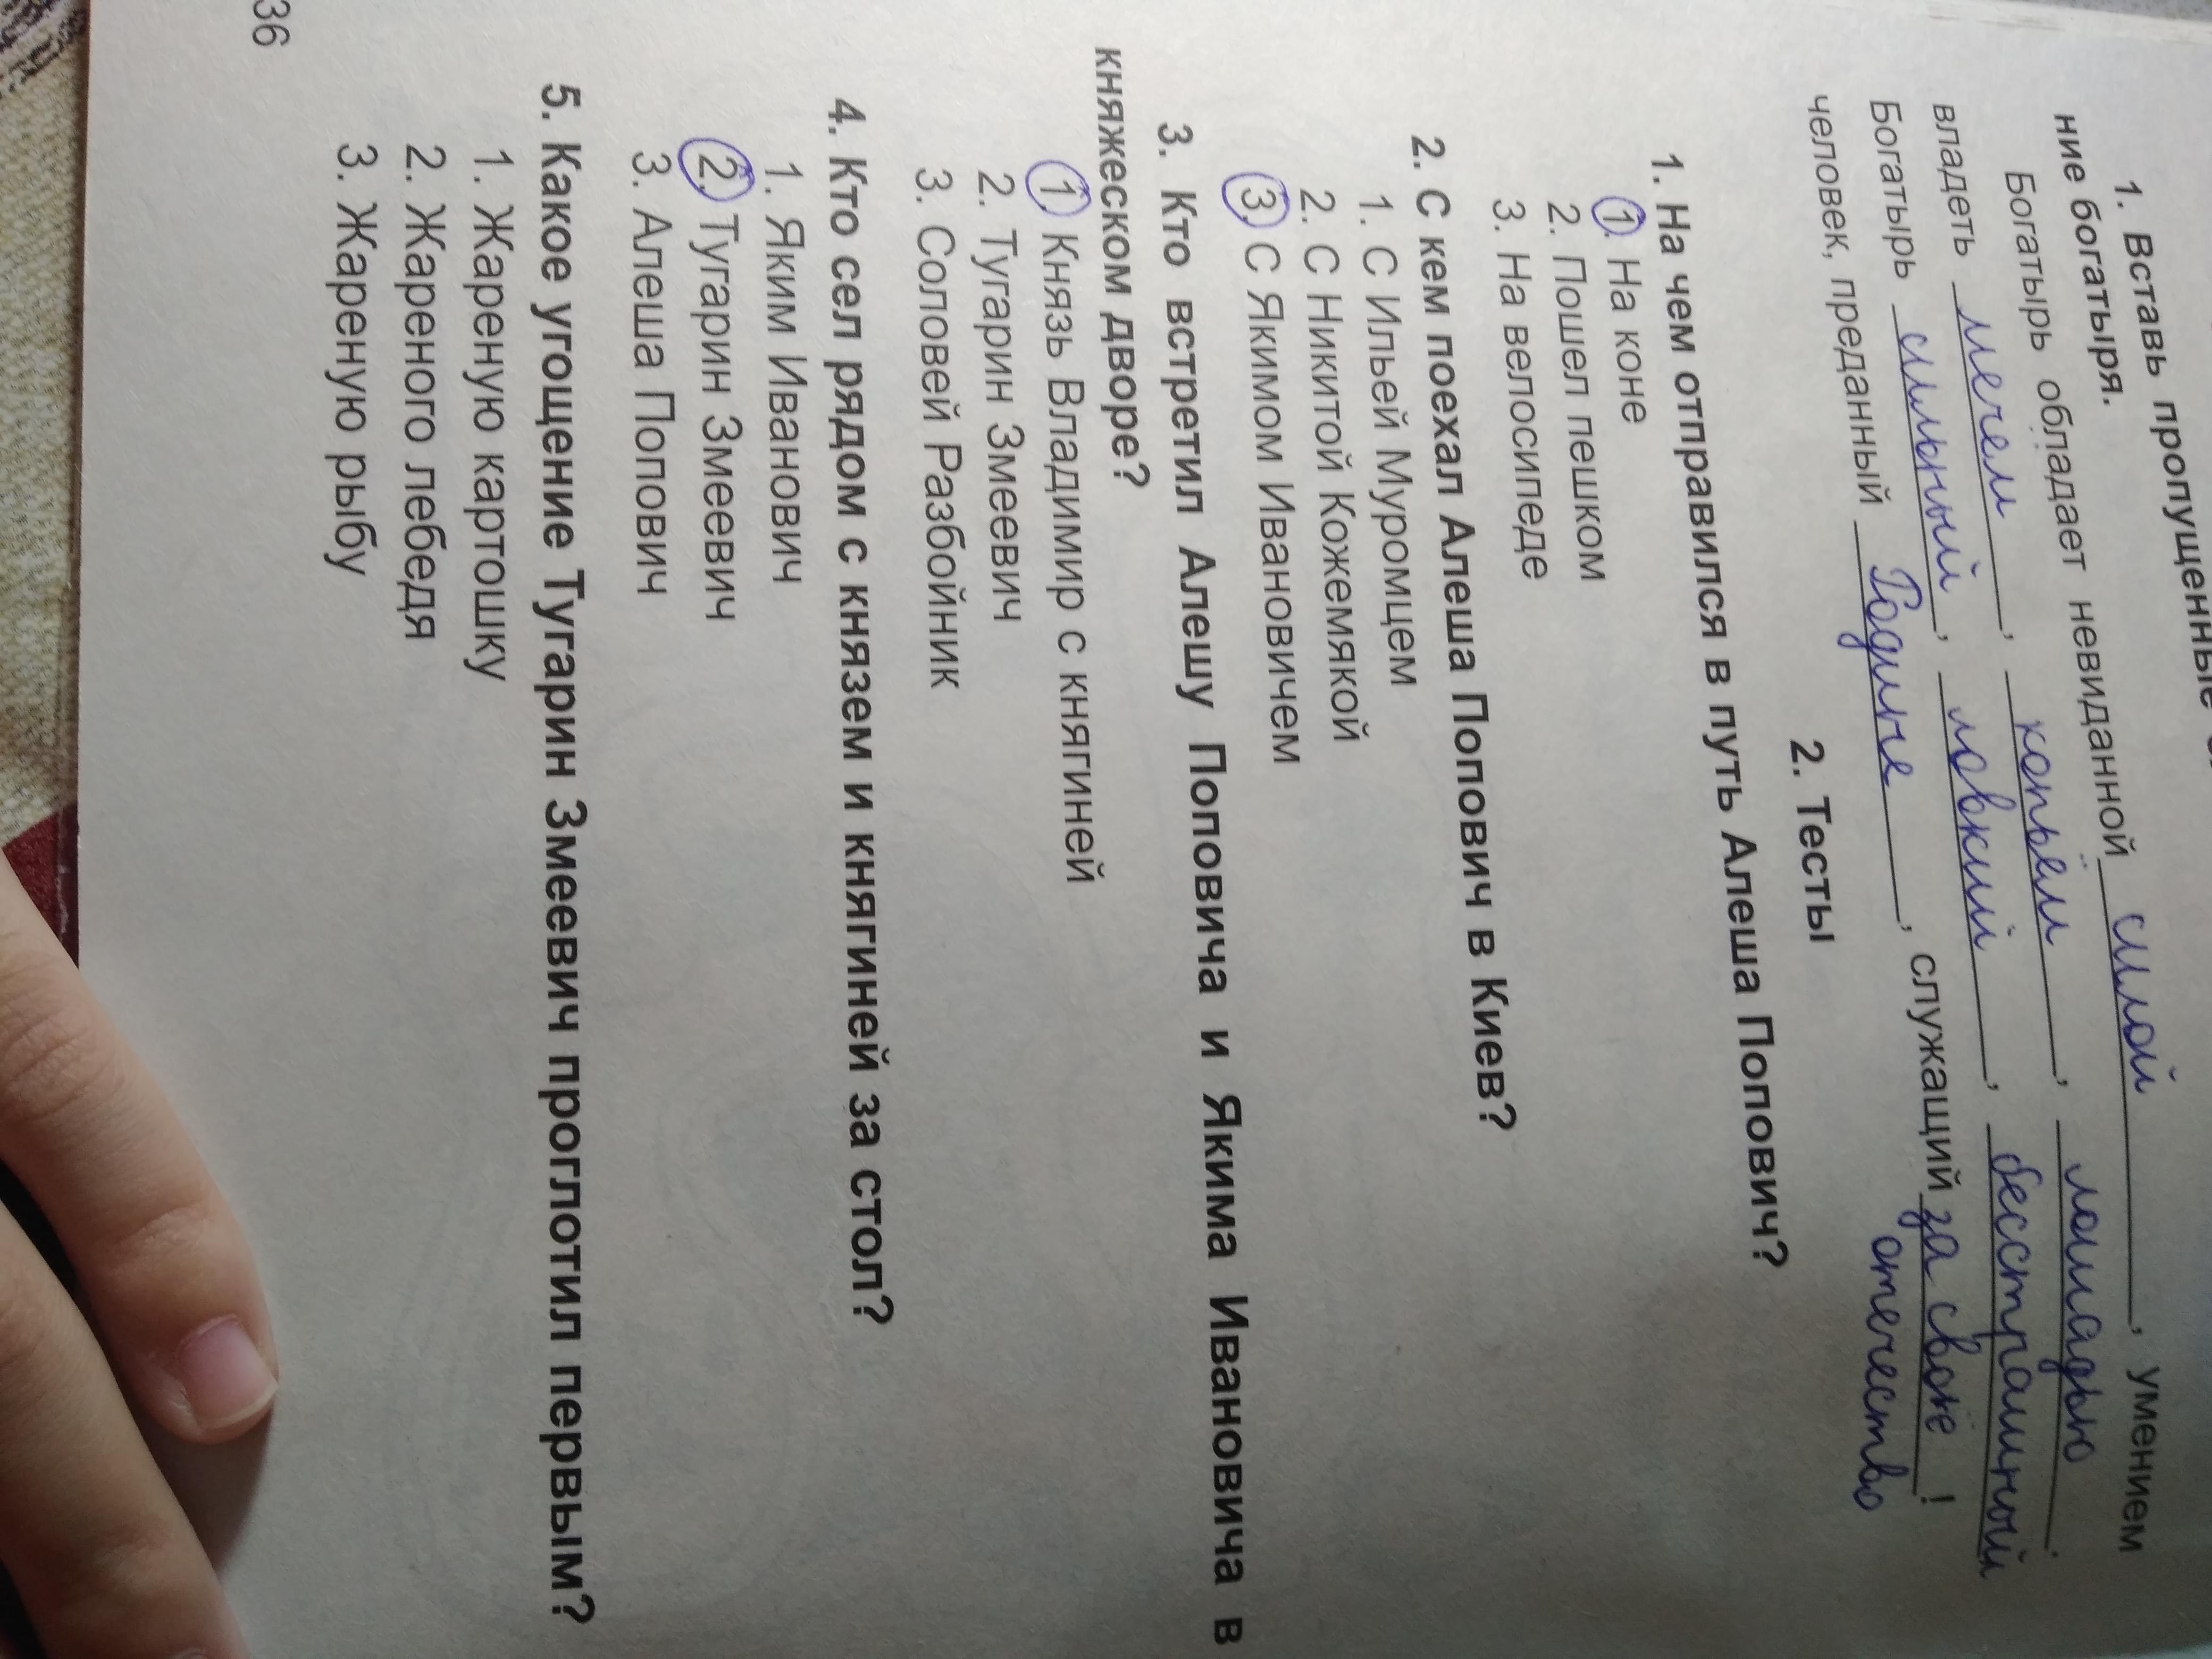 1. Вставь пропущенные
ние богатыря.
Богатырь обладает невиданной силой, умением
владеть мечем, копьём, лошадью.
Богатырь сильный, ловкий, бесстрашный
человек, преданный Родине, служащий за своё !
отечество
2. Тесты
1. На чем отправился в путь Алеша Попович?
1. На коне
2. Пошел пешком
3. На велосипеде
2. С кем поехал Алеша Попович в Киев?
1. С Ильей Муромцем
2. С Никитой Кожемякой
3. С Якимом Ивановичем
3. Кто встретил Алешу Поповича и Якима Ивановича в
княжеском дворе?
1. Князь Владимир с княгиней
2. Тугарин Змеевич
3. Соловей Разбойник
4. Кто сел рядом с князем и княгиней за стол?
1. Яким Иванович
2. Тугарин Змеевич
3. Алеша Попович
5. Какое угощение Тугарин Змеевич проглотил первым?
1. Жареную картошку
2. Жареного лебедя
3. Жареную рыбу
36